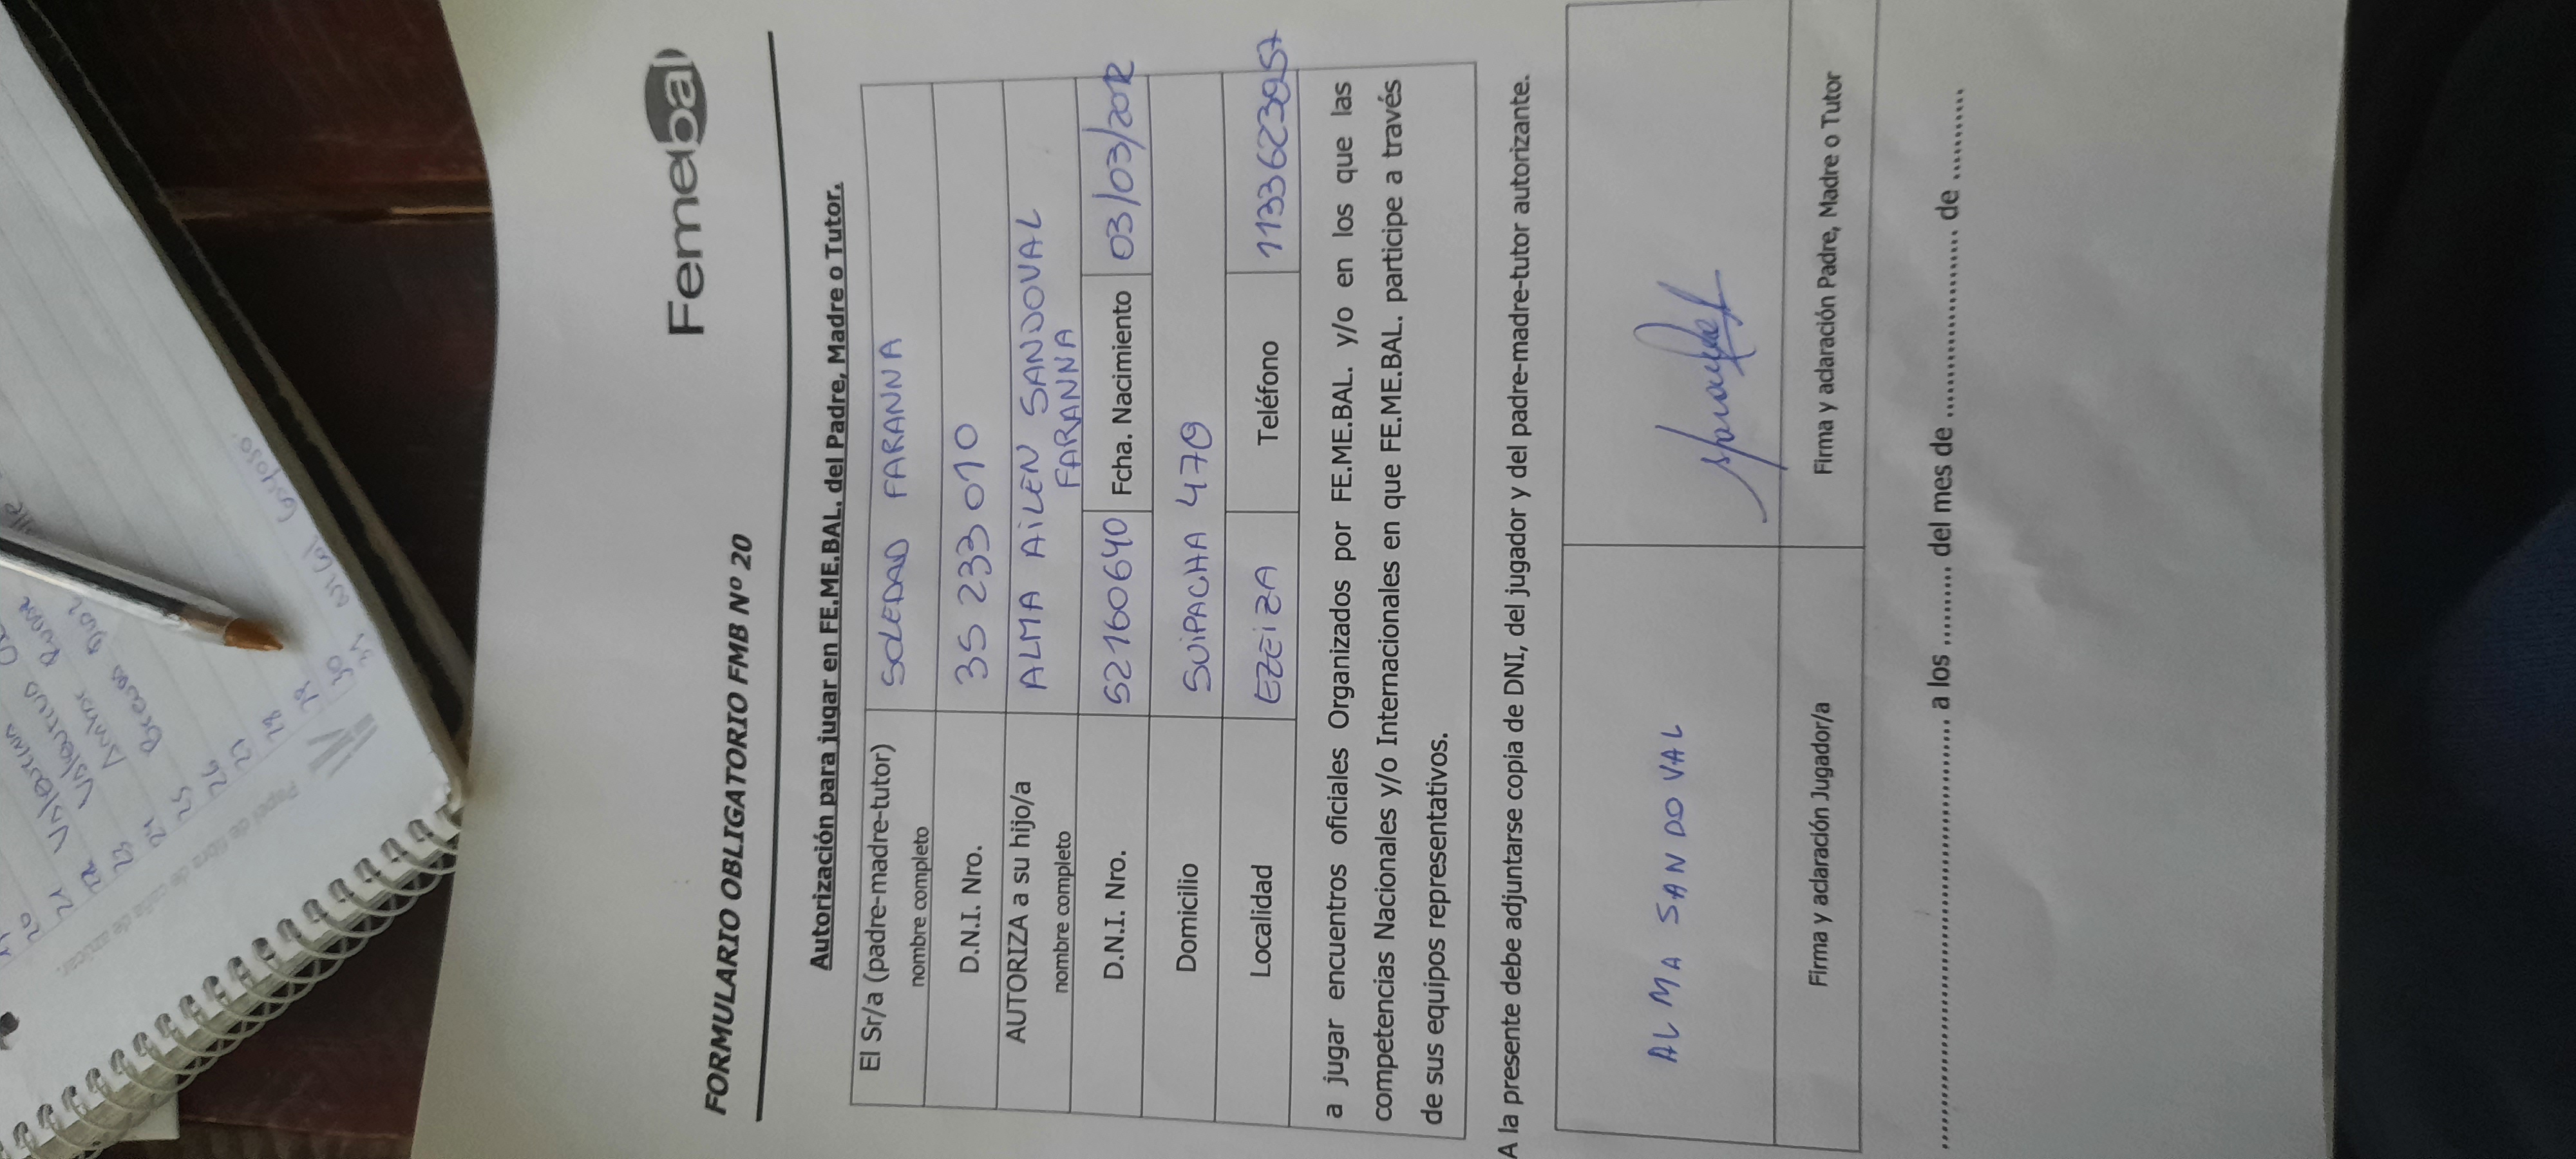 Femebal
FORMULARIO OBLIGATORIO FMB Nº 20
Autorización para jugar en FE.ME.BAL. del Padre, Madre o Tutor.
El Sr/a (padre-madre-tutor) nombre completo SOLEDAD FARANNA
D.N.I. Nro. 35 233 010
AUTORIZA a su hijo/a nombre completo ALMA AiLEN SANDOVAL FARANNA
D.N.I. Nro. 52160640 Fcha. Nacimiento 03/03/2012
Domicilio SUiPACHA 470
Localidad EZEiZA Teléfono
a jugar encuentros oficiales Organizados por FE.ME.BAL. y/o en los que las
competencias Nacionales y/o Internacionales en que FE.ME.BAL. participe a través
de sus equipos representativos.
A la presente debe adjuntarse copia de DNI, del jugador y del padre-madre-tutor autorizante.
ALMA SANDOVAL
Firma y aclaración Jugador/a Firma y aclaración Padre, Madre o Tutor
........................................ a los ........ del mes de ........................ de ..........
Papel de fibra de caña de azúcar.
20
21
22
23
24
25
26
27
28
30
31